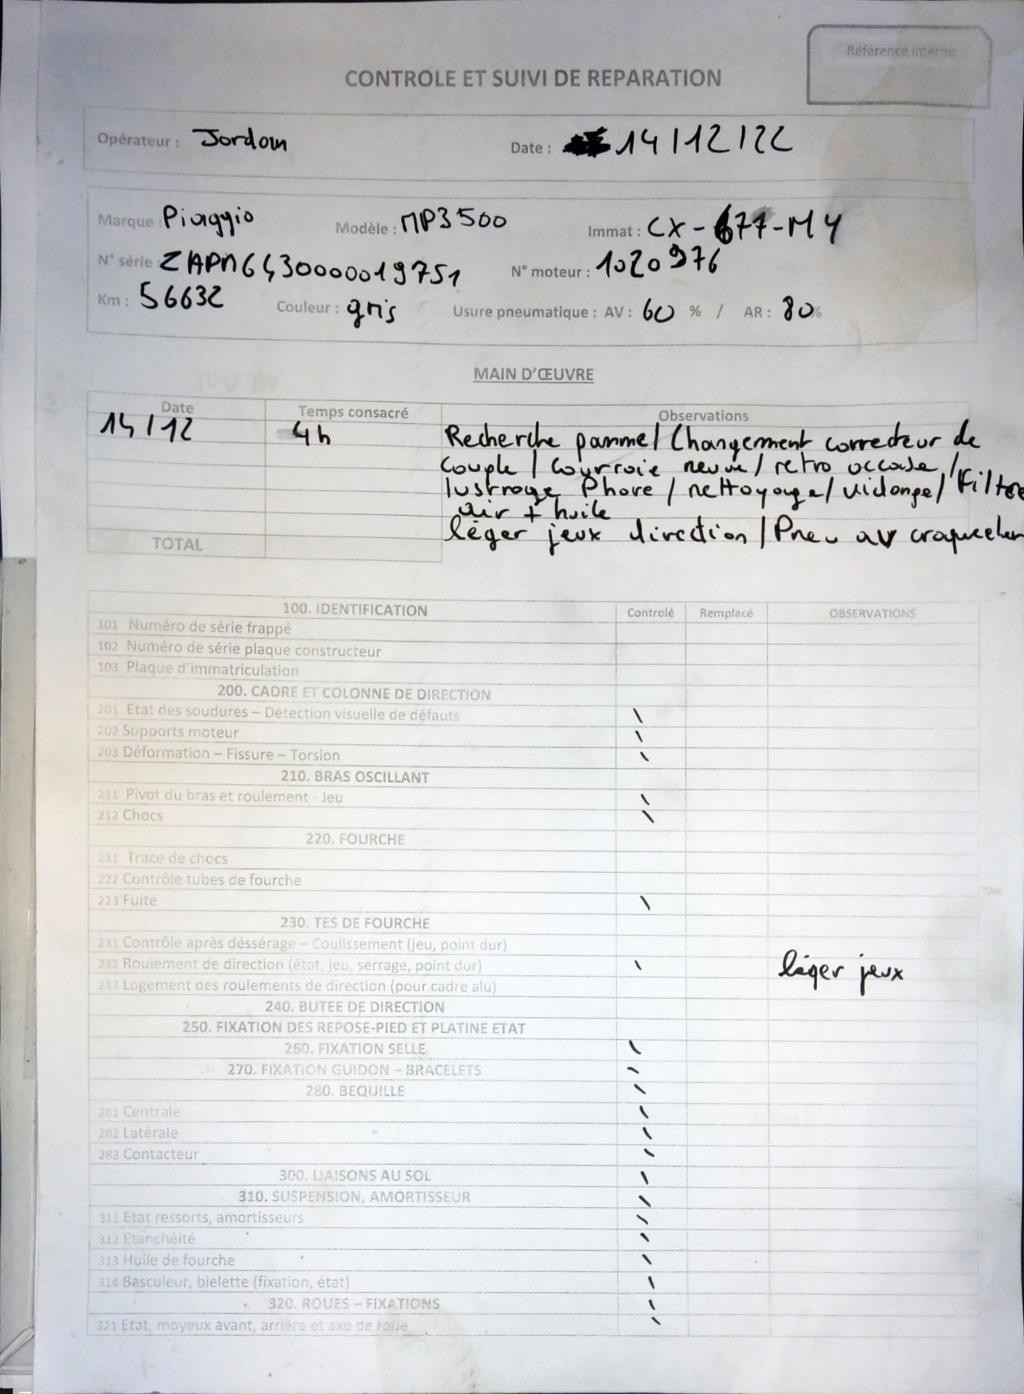 Référence interne
CONTROLE ET SUIVI DE REPARATION
Opérateur : Jordan Date : 14/12/22
Marque : Piaggio Modèle : MP3 500 Immat : CX-677-MY
N° série ZAPM6430000019751 N° moteur : 1020976
Km : 56632 Couleur : gris Usure pneumatique : AV : 60 % / AR : 80%
MAIN D'ŒUVRE
Date Temps consacré Observations
14/12 4h Recherche panne / Changement correcteur de
couple / courroie neuve / retro occase /
lustrage Phare / nettoyage / vidange / Filtre
air + huile
léger jeux direction / Pneu av craqueler
TOTAL
100. IDENTIFICATION Controlé Remplacé OBSERVATIONS
101 Numéro de série frappé
102 Numéro de série plaque constructeur
103 Plaque d'immatriculation
200. CADRE ET COLONNE DE DIRECTION
201 Etat des soudures – Détection visuelle de défauts \
202 Supports moteur \
203 Déformation – Fissure – Torsion \
210. BRAS OSCILLANT
211 Pivot du bras et roulement - Jeu \
212 Chocs \
220. FOURCHE
221 Trace de chocs
222 Contrôle tubes de fourche
223 Fuite \
230. TES DE FOURCHE
231 Contrôle après déssérage – Coulissement (jeu, point dur)
232 Roulement de direction (état, jeu, serrage, point dur) \ léger jeux
233 Logement des roulements de direction (pour cadre alu)
240. BUTEE DE DIRECTION
250. FIXATION DES REPOSE-PIED ET PLATINE ETAT
260. FIXATION SELLE \
270. FIXATION GUIDON – BRACELETS \
280. BEQUILLE \
281 Centrale \
282 Latérale \
283 Contacteur \
300. LIAISONS AU SOL \
310. SUSPENSION, AMORTISSEUR \
311 Etat ressorts, amortisseurs \
312 Etanchéité \
313 Huile de fourche \
314 Basculeur, bielette (fixation, état) \
320. ROUES – FIXATIONS \
321 Etat, moyeux avant, arrière et axe de roue \